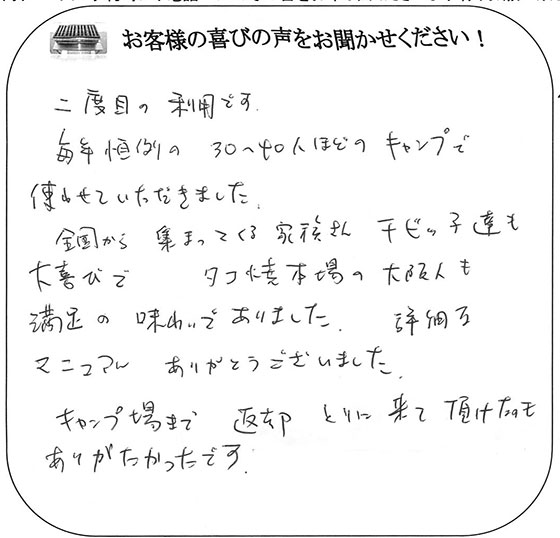 お客様の喜びの声をお聞かせください!
二度目の利用です.
毎年恒例の 30〜40人ほどのキャンプで
使わせていただきました.
全国から 集まってくる 家族さん チビッ子達も
大喜びで タコ焼本場の大阪人も
満足の 味わいで ありました. 詳細な
マニュアル ありがとうございました.
キャンプ場まで 返却 とりに来て頂けたのも
ありがたかったです.